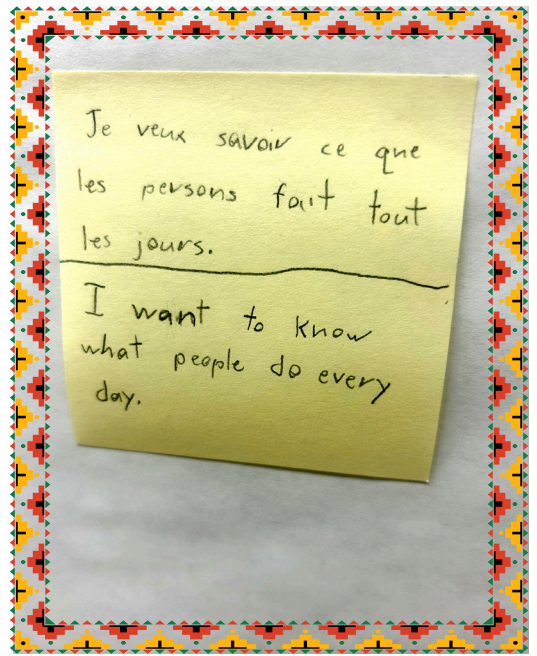 Je veux savoir ce que
les persons fait tout
les jours.
I want to know
what people do every
day.